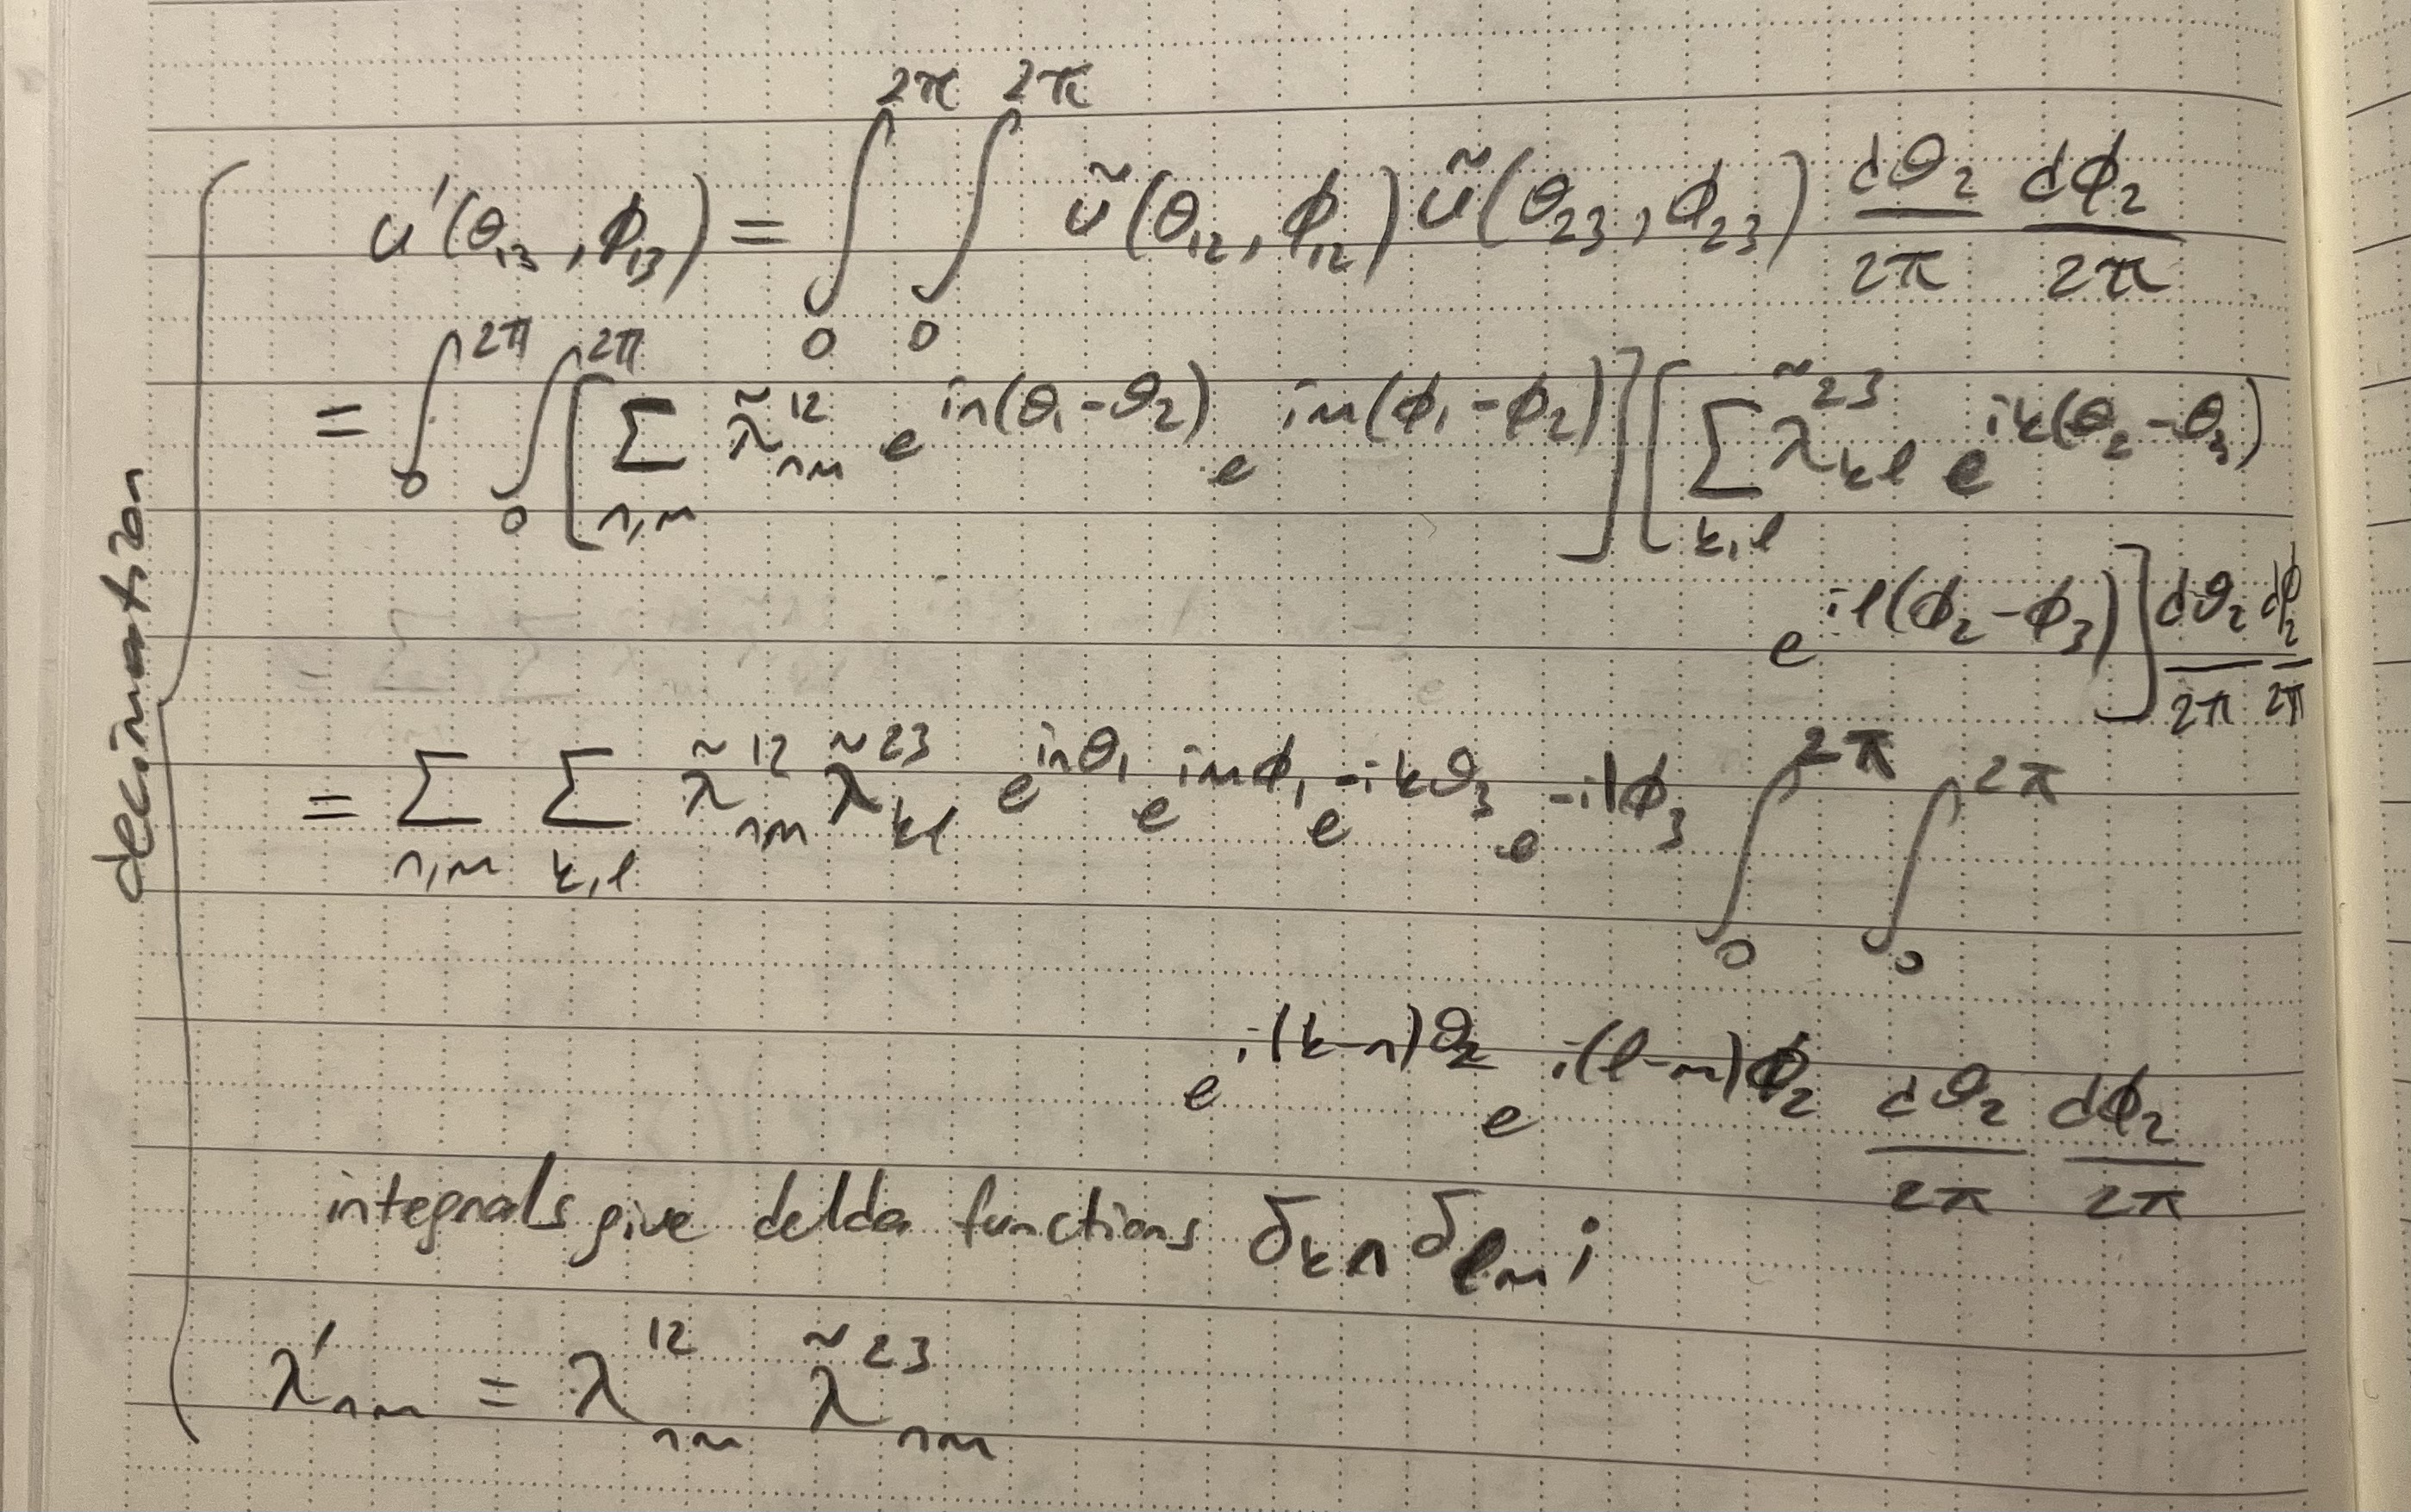 decimation
u'(θ₁₃, ϕ₁₃) = ∫₀^{2π} ∫₀^{2π} ũ(θ₁₂, ϕ₁₂) ũ(θ₂₃, ϕ₂₃) dθ₂/2π dϕ₂/2π
= ∫₀^{2π} ∫₀^{2π} [ Σ_{n,m} λ̃^{12}_{nm} e^{in(θ₁-θ₂)} e^{im(ϕ₁-ϕ₂)} ] [ Σ_{k,l} λ̃^{23}_{kl} e^{ik(θ₂-θ₃)}
e^{il(ϕ₂-ϕ₃)} ] dθ₂/2π dϕ₂/2π
= Σ_{n,m} Σ_{k,l} λ̃^{12}_{nm} λ̃^{23}_{kl} e^{inθ₁} e^{imϕ₁} e^{-ikθ₃} e^{-ilϕ₃} ∫₀^{2π} ∫₀^{2π}
e^{i(k-n)θ₂} e^{i(l-m)ϕ₂} dθ₂/2π dϕ₂/2π
integrals give delda functions δ_{kn} δ_{lm} ;
λ'_{nm} = λ^{12}_{nm} λ̃^{23}_{nm}